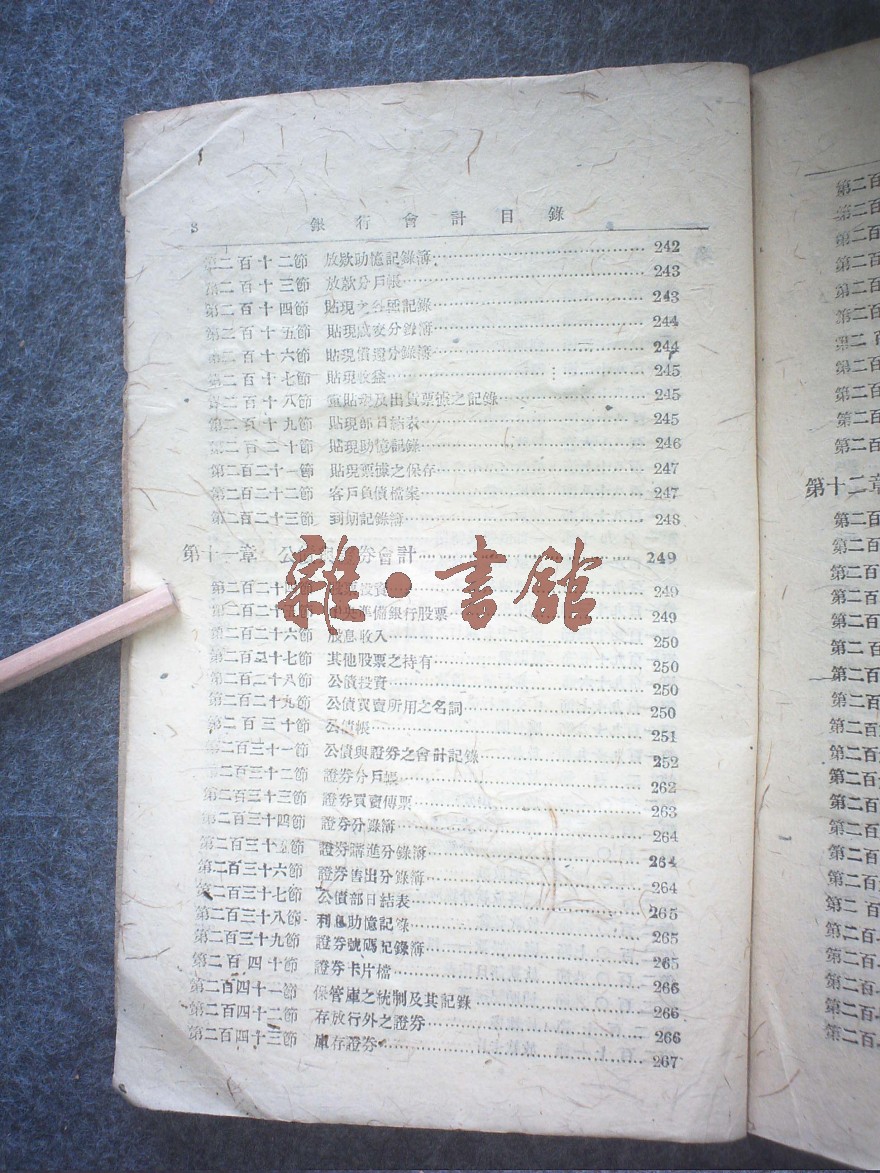 8 銀行會計目錄
第二百十二節 放款助憶記錄簿 242
第二百十三節 放款分戶帳 243
第二百十四節 貼現之各種記錄 243
第二百十五節 貼現成交分錄簿 244
第二百十六節 貼現償還分錄簿 244
第二百十七節 貼現收益 245
第二百十八節 重貼現及出貨票據之記錄 245
第二百十九節 貼現部日結表 245
第二百二十節 貼現助憶記錄 246
第二百二十一節 貼現票據之保存 247
第二百二十二節 客戶負債檔案 247
第二百二十三節 到期記錄簿 248
第十一章 公債與證券會計 249
第二百二十四節 投資 249
第二百二十五節 準備銀行股票 249
第二百二十六節 股息收入 250
第二百二十七節 其他股票之持有 250
第二百二十八節 公債投資 250
第二百二十九節 公債買賣所用之名詞 250
第二百三十節 公債帳 251
第二百三十一節 公債與證券之會計記錄 252
第二百三十二節 證券分戶帳 262
第二百三十三節 證券買賣傳票 263
第二百三十四節 證券分錄簿 264
第二百三十五節 證券購進分錄簿 264
第二百三十六節 證券售出分錄簿 264
第二百三十七節 公債部日結表 265
第二百三十八節 利息助憶記錄 265
第二百三十九節 證券號碼記錄簿 265
第二百四十節 證券卡片檔 266
第二百四十一節 保管庫之統制及其記錄 266
第二百四十二節 存放行外之證券 266
第二百四十三節 庫存證券 267
雜·書館
第二百
第二百
第二百
第二百
第二百
第二百
第二百
第二百
第二百
第二百
第二百
第十二章
第二百
第二百
第二百
第二百
第二百
第二百
第二百
第二百
第二百
第二百
第二百
第二百
第二百
第二百
第二百
第二百
第二百
第二百
第二百
第二百
第二百